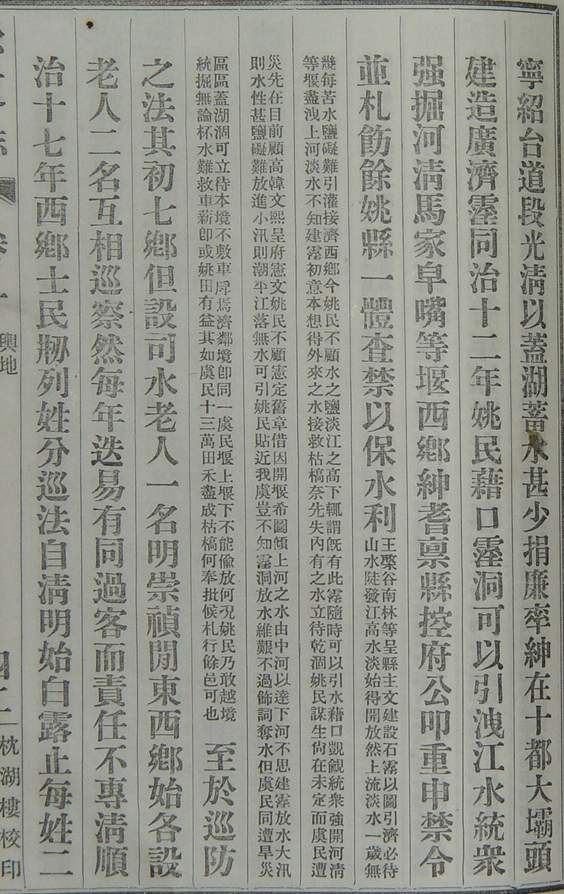 寧紹台道段光清以蓋湖蓄水甚少捐廉率紳在十都大壩頭
建造廣濟霪同治十二年姚民藉口霪洞可以引洩江水統衆
强掘河清馬家皐嘴等堰西鄉紳耆禀縣控府公叩重申禁令
並札飭餘姚縣一體查禁以保水利
王槩谷南林等呈縣主文建設石霪以圖引濟必待
山水陡發江高水淡始得開放然上流淡水一歲無
幾每苦水鹽礙難引灌接濟西鄉今姚民不顧水之鹽淡江之高下輒謂旣有此霪隨時可以引水藉口覬覦統衆強開河清
等堰盡洩上河淡水不知建霪初意本想得外來之水接救枯槁奈先失內有之水立待乾涸姚民謀生尙在未定而虞民遭
災先在目前顧高韓文熙呈府憲文姚民不顧憲定舊章借因開堰希圖傾上河之水由中河以達下河不思建霪放水大汛
則水性甚鹽礙難放進小汛則潮平江落無水可引姚民貼近我虞豈不知霪洞放水維艱不過飾詞奪水但虞民同遭旱災
區區蓋湖涸可立待本境不敷車戽焉濟鄰境卽同一虞民堰上堰下不能偷放何况姚民乃敢越境
統掘無論杯水難救車薪卽或姚田有益其如虞民十三萬田禾盡成枯槁何奉批候札行餘邑可也
至於巡防
之法其初七鄉但設司水老人一名明崇禎閒東西鄉始各設
老人二名互相巡察然每年迭易有同過客而責任不專清順
治十七年西鄉士民剏列姓分巡法自清明始白露止每姓二
輿地
枕湖樓校印